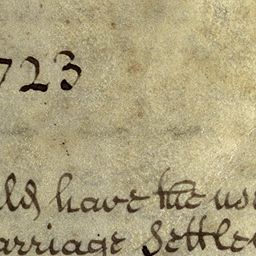 723
ld have the
arriage Settle